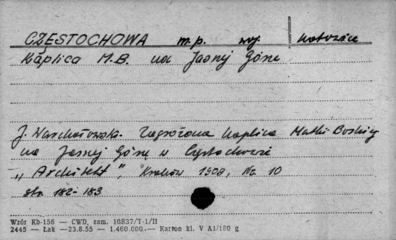 CZĘSTOCHOWA m.p. woj. katowice
Kaplica M.B. na Jasnej Górze
J. Warchałowska. Zagrożona kaplica Matki Boskiej
na Jasnej Górze w Częstochowie
"Architekt", Kraków 1908, Nr. 10
str. 182-183
Wzór Kb-156 — CWD, zam. 10837/T-1/II
2445 — Łak — 23.8.55 — 1.460.000.— Karton kl. V A1/180 g